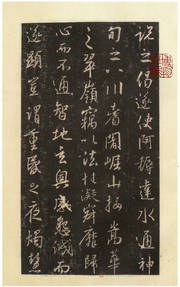 說之偈遂使阿耨達水通神
甸之八川耆闍崛山接嵩華
之翠嶺竊以法性凝寂靡歸
心而不通智地玄奧感懇誠而
遂顯豈謂重昏之夜燭慧